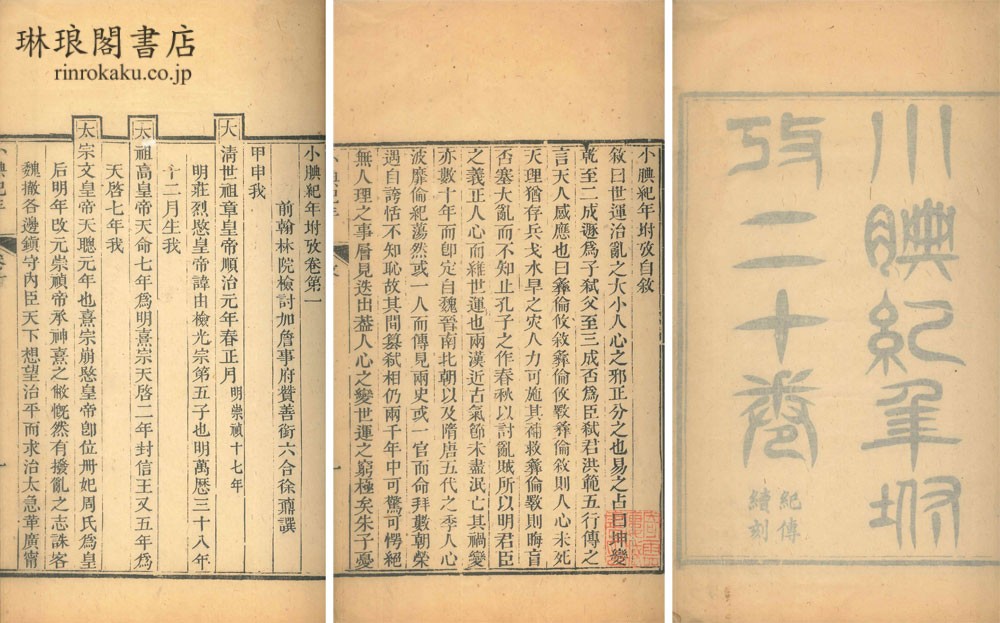 琳琅閣書店
rinrokaku.co.jp
小腆紀年坿
攷二十卷
紀傳
續刻
小腆紀年坿攷自敘
敘曰世運治亂之大小人心之邪正分之也易之占曰坤變
乾至二成遯爲子弒父至三成否爲臣弒君洪範五行傳之
言天人感應也曰彝倫攸敘彝倫攸斁彝倫敘則人心未死
天理猶存兵戈水旱之灾人力可施其補救彝倫斁則晦盲
否塞大亂而不知止孔子之作春秋以討亂賊所以明君臣
之義正人心而維世運也兩漢近古氣節未盡泯亡其禍變
亦數十年而卽定自魏晉南北朝以及隋唐五代之季人心
波靡倫紀蕩然或一人而傳見兩史或一官而命拜數朝榮
遇自誇恬不知恥故其間簒弒相仍兩千年中可驚可愕絕
無人理之事層見迭出蓋人心之變世運之窮極矣朱子憂
小腆紀年坿攷卷第一
前翰林院檢討加詹事府贊善銜六合徐鼒譔
甲申我
大清世祖章皇帝順治元年春正月明崇禎十七年
明莊烈愍皇帝諱由檢光宗第五子也明萬厯三十八年
十二月生我
太祖高皇帝天命七年爲明熹宗天啓二年封信王又五年爲
天啓七年我
太宗文皇帝天聰元年也熹宗崩愍皇帝卽位冊妃周氏爲皇
后明年改元崇禎帝承神熹之敝慨然有撥亂之志誅客
魏撤各邊鎭守內臣天下想望治平而求治太急華廣甯